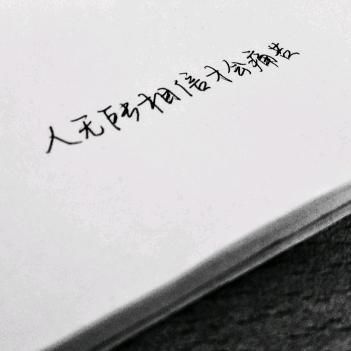 人无所相信才会痛苦